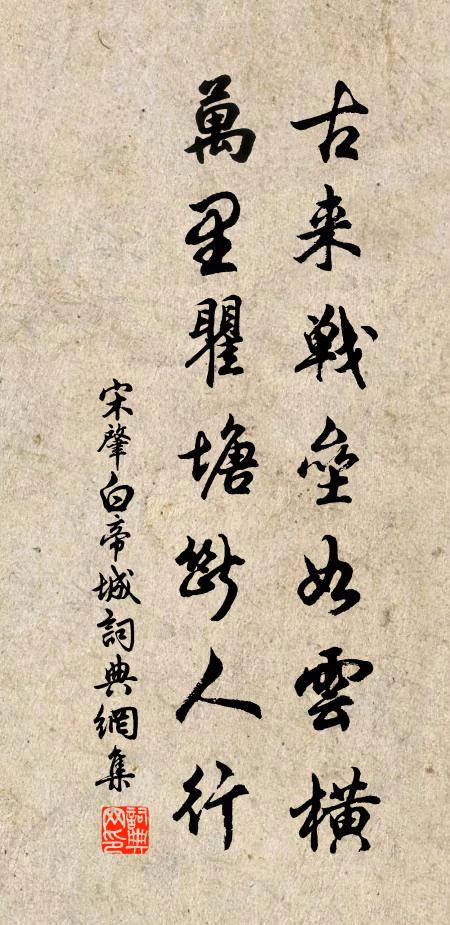 古来戰壘如雲橫
萬里瞿塘斷人行
宋肇白帝城詞典網集
詞典网印